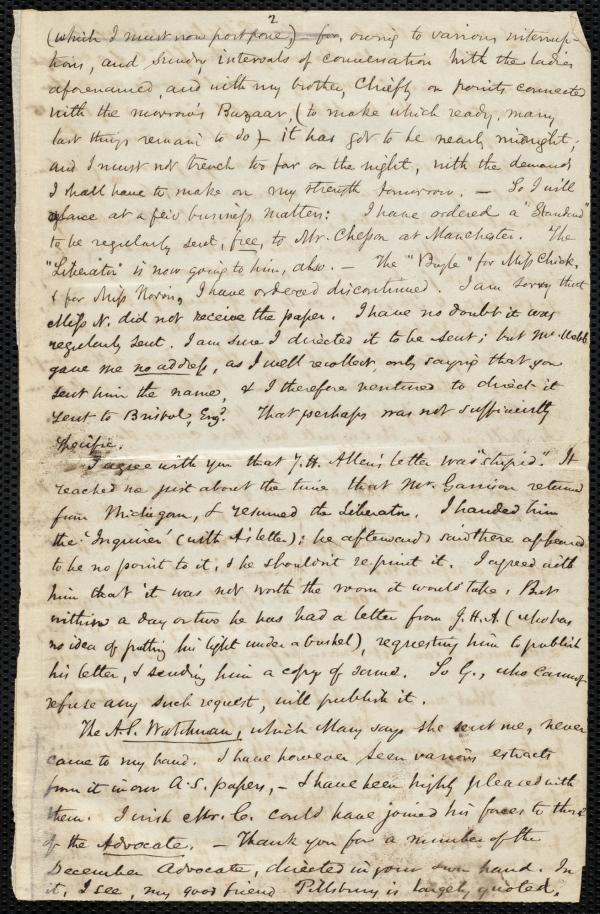 2
(which I must now postpone) – for, owing to various interrup-
tions, and sundry intervals of conversation with the ladies
aforenamed, and with my brother, chiefly on points connected
with the morrow's Bazaar, (to make which ready, many
last things remain to do) – it has got to be nearly midnight;
and I must not trench too far on the night, with the demands
I shall have to make on my strength tomorrow. – So I will
glance at a few business matters: I have ordered a "Standard"
to be regularly sent, free, to Mr. Chesson at Manchester. The
"Liberator" is now going to him, also. – The "Bugle" for Miss Chick,
& for Miss Noring, I have ordered discontinued. I am sorry that
Miss N. did not receive the paper. I have no doubt it was
regularly sent. I am sure I directed it to be sent; but Mr.
gave me no address, as I well recollect, only saying that you
sent him the name, & I therefore ventured to direct it
sent to Bristol, Engd. That perhaps was not sufficiently
specific.
I agree with you that J.H. Allen's letter was "stupid." It
reached me just about the time that Mr. Garrison returned
from Michigan, & resumed the Liberator. I handed him
the 'Inquirer' (with A's letter); he afterwards said there appeared
to be no point to it, & he shouldn't reprint it. I agreed with
him that it was not worth the room it would take. But
within a day or two he has had a letter from J.H.A. (who has
no idea of putting his light under a bushel), requesting him to publish
his letter, & sending him a copy of same. So G., who cannot
refuse any such request, will publish it.
The A.S. Watchman, which Mary says she sent me, never
came to my hand. I have however seen various extracts
from it in our A.S. papers, – & have been highly pleased with
them. I wish Mr. C. could have joined his forces to those
of the Advocate. – Thank you for a number of the
December Advocate, directed in your own hand. In
it, I see, my good friend Pillsbury is largely quoted.